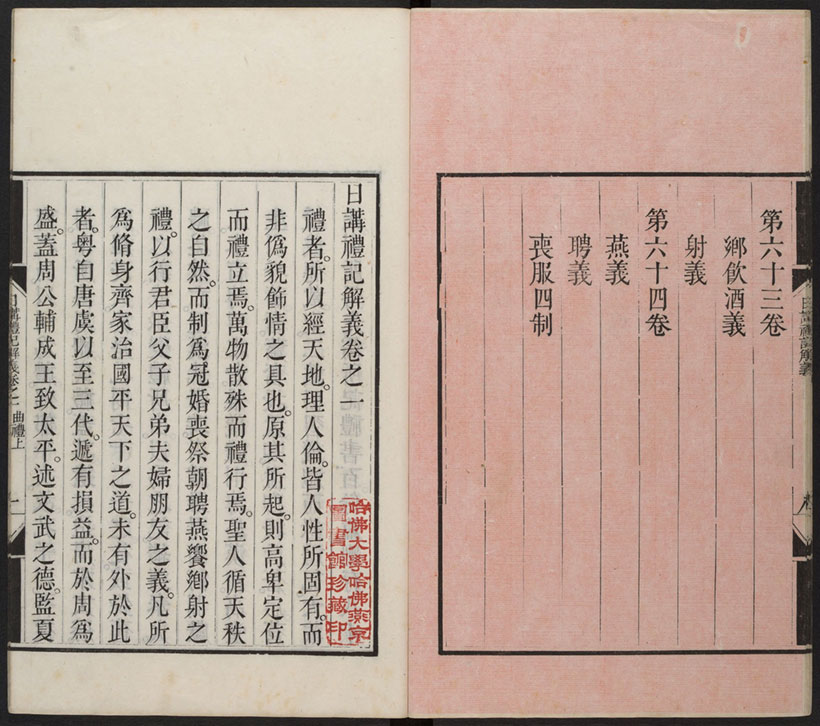 第六十三卷
鄉飲酒義
射義
第六十四卷
燕義
聘義
喪服四制
日講禮記解義
日講禮記解義卷之一
禮者。所以經天地。理人倫。皆人性所固有。而
非僞貌飾情之具也。原其所起。則高卑定位
而禮立焉。萬物散殊而禮行焉。聖人循天秩
之自然。而制爲冠婚喪祭朝聘燕饗鄉射之
禮。以行君臣父子兄弟夫婦朋友之義。凡所
爲脩身齊家治國平天下之道。未有外於此
者。粵自唐虞以至三代。遞有損益。而於周爲
盛。蓋周公輔成王致太平。述文武之德。監夏
日講禮記解義卷之一 曲禮上 一
哈佛大學哈佛燕京
圖書館珍藏印